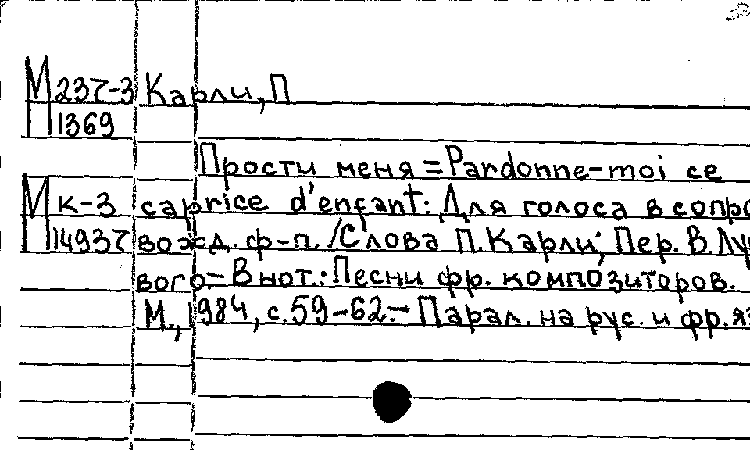 М 237-3 Карли, П
П 1369
Прости меня = Pardonne-moi ce
М к-3 caprice d'enfant: Для голоса в сопро
П 14937 вожд. ф-п. / Слова П. Карли; Пер. В. Лу
вого – В нот.: Песни фр. композиторов.
М., 1984, с. 59-62. – Парал. на рус. и фр. яз